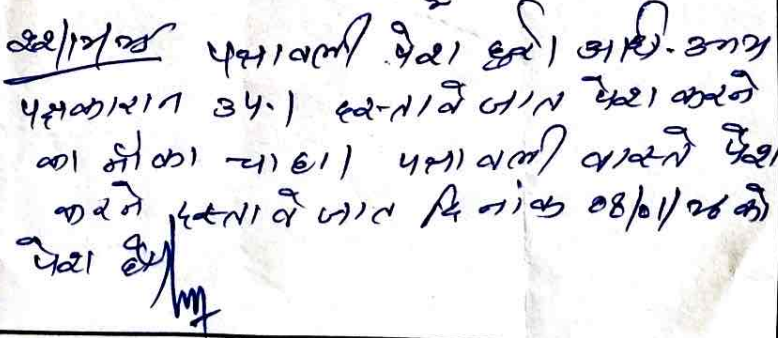 22/12/25 पत्रावली पेश हुई। अधि. उभय
पक्षकारान उप.। दस्तावेजात पेश करने
का मौका चाहा। पत्रावली वास्ते पेश
करने दस्तावेजात दिनांक 08/01/26 को
पेश हो।